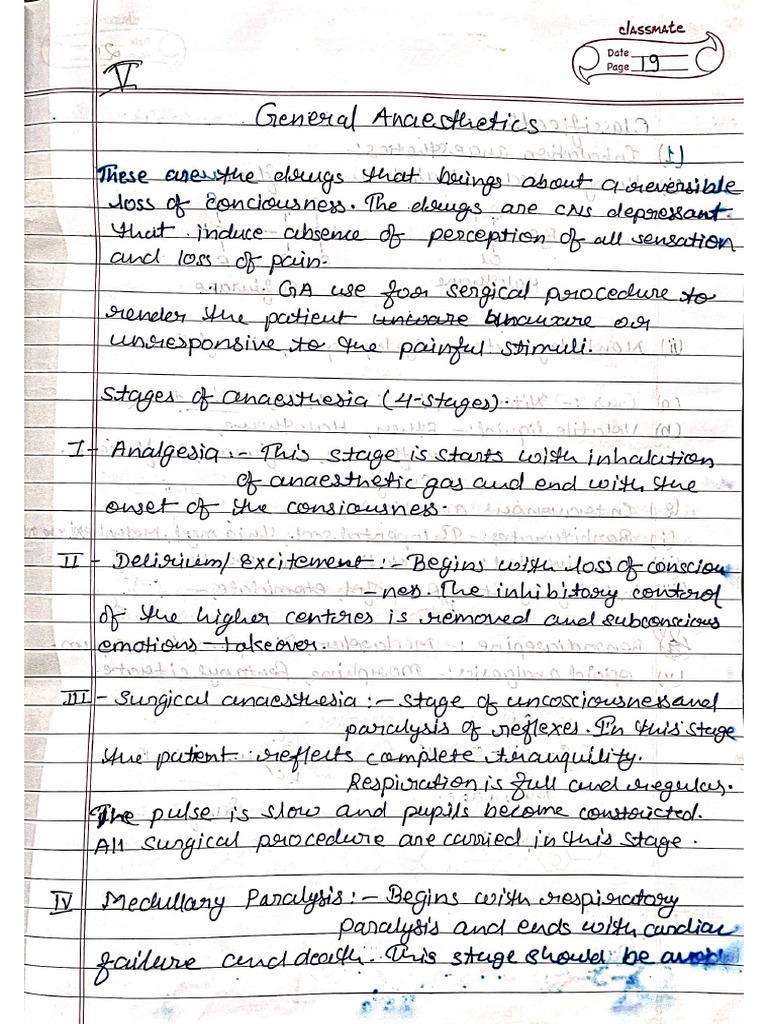 classmate
Date
Page 19
V
General Anaesthetics
These are the drugs that brings about a reversible
loss of conciousness. The drugs are CNS depressant
that induce absence of perception of all sensation
and loss of pain.
GA use for sergical procedure to
render the patient or
unresponsive to the painful stimuli.
Stages of anaesthesia (4-stages).
I - Analgesia :- This stage is starts with inhalation
of anaesthetic gas and end with the
onset of the consiousness.
II - Delirium/Excitement :- Begins with loss of conscious
-nes. The inhibitory control
of the higher centres is removed and subconscious
emotions - takeover.
III - Surgical anaesthesia :- Stage of uncosciousness and
paralysis of reflexes. In this stage
the patient reflects complete tranquility.
Respiration is full and regular.
The pulse is slow and pupils become constricted.
All surgical procedure are carried in this stage.
IV Medullary Paralysis :- Begins with respiratory
paralysis and ends with cardiac
failure and death. This stage should be